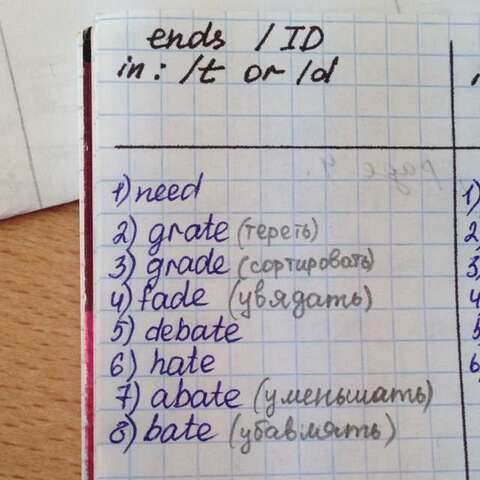 ends / ID
in: /t or /d
page 4.
1) need
2) grate (тереть)
3) grade (сортировать)
4) fade (увядать)
5) debate
6) hate
7) abate (уменьшать)
8) bate (убавлять)
1)
2,
3,
4
5
6